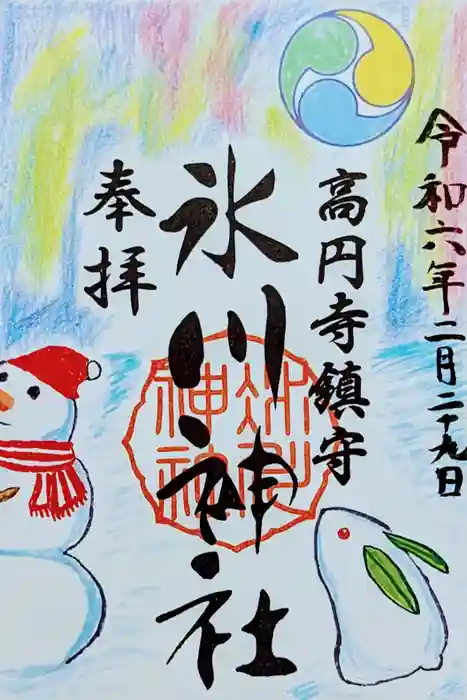 令和六年二月二十九日
高円寺鎮守
氷川神社
奉拝